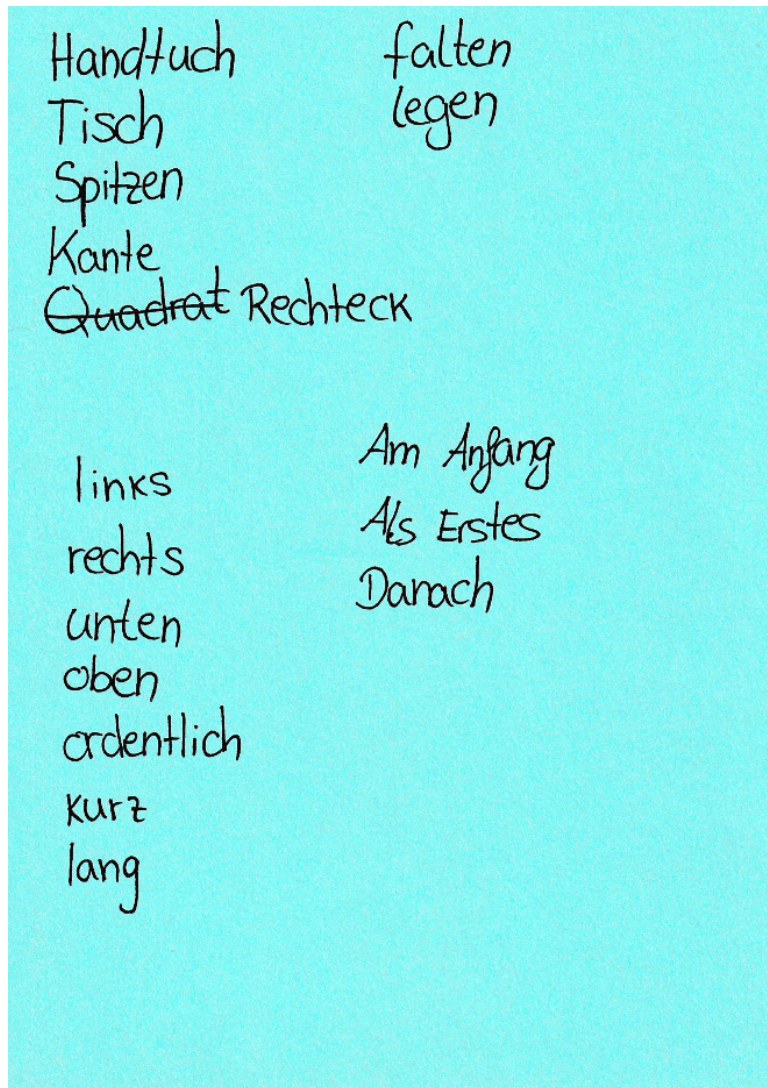 Handtuch
Tisch
Spitzen
Kante
Quadrat Rechteck
falten
legen
links
rechts
unten
oben
ordentlich
kurz
lang
Am Anfang
Als Erstes
Danach